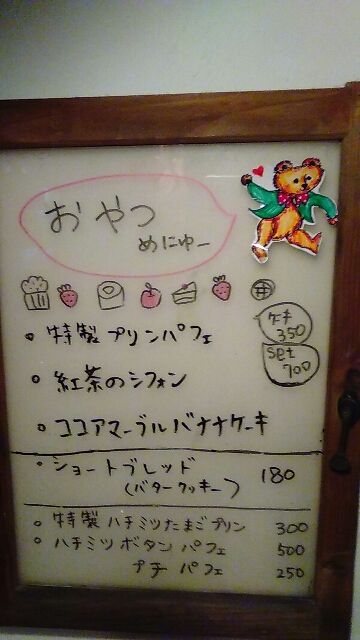 おやつ
めにゅー
ケーキ
350
set
700
・特製プリンパフェ
・紅茶のシフォン
・ココアマーブルバナナケーキ
・ショートブレッド 180
(バタークッキー)
・特製ハチミツたまごプリン 300
・ハチミツボタンパフェ 500
プチパフェ 250